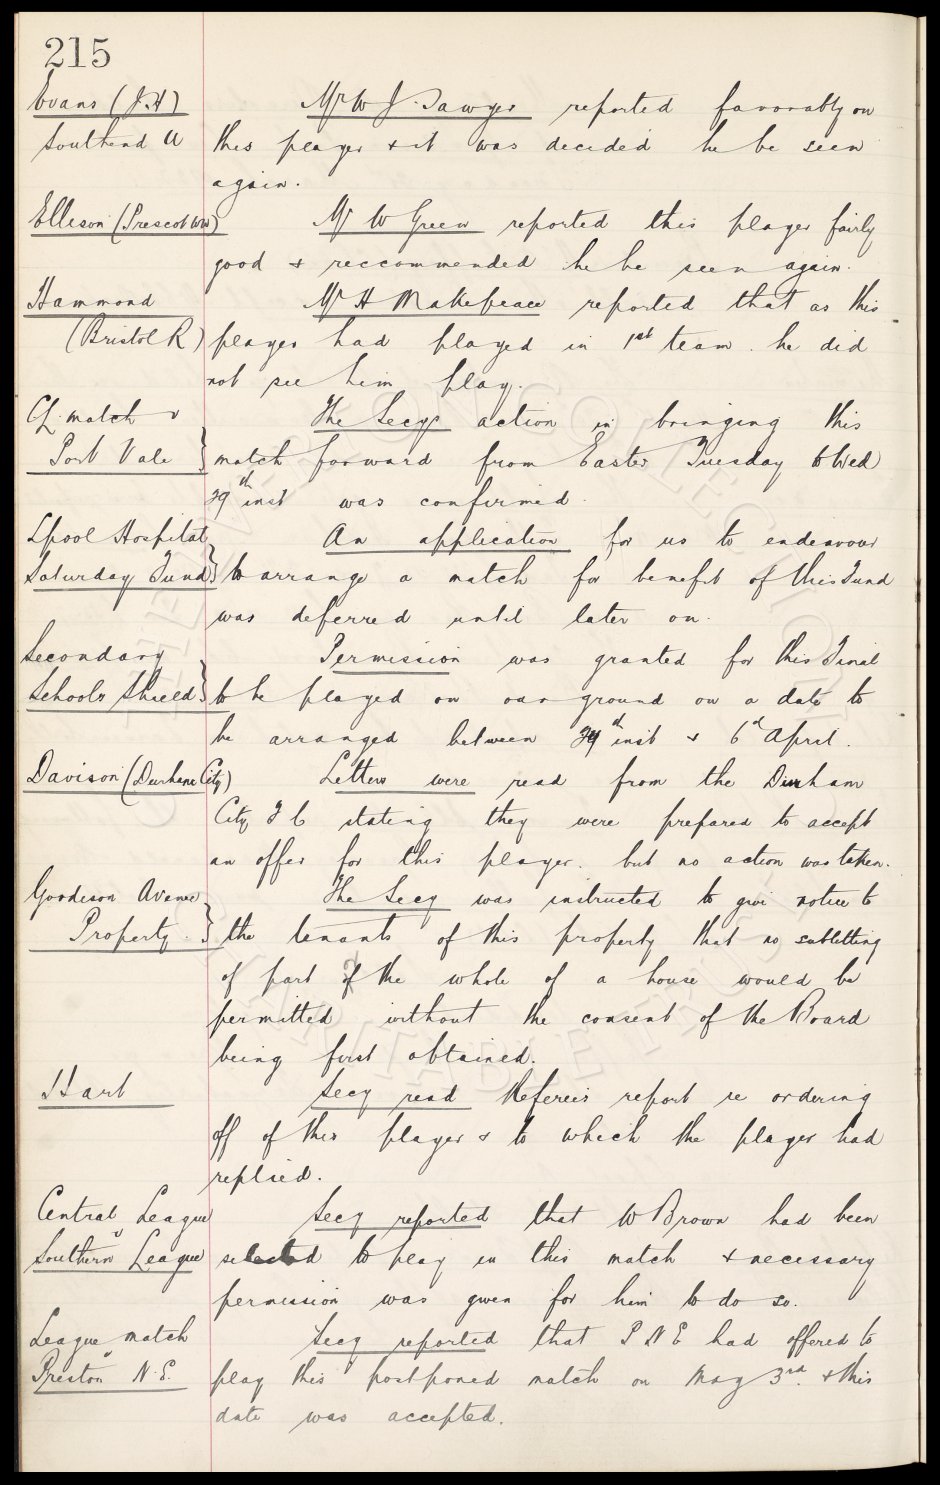 215
Evans (J.H) Mr W J. Sawyer reported favorably on
Southend U this player & it was decided he be seen
again.
Ellison (Prescot Ww) Mr W Green reported this player fairly
good & reccommended he be seen again.
Hammond Mr H Makepeace reported that as this
(Bristol R) player had played in 1st team. he did
not see him play.
CL. match v The Secys action in bringing this
Port Vale } match forward from Easter Tuesday to Wed
29th inst was confirmed.
Lpool Hospital An application for us to endeavour
Saturday Fund } to arrange a match for benefit of this Fund
was deferred until later on.
Secondary Permission was granted for this Final
Schools Shield } to be played on our ground on a date to
be arranged between inst & 6th April.
Davison (Durham City) Letters were read from the Durham
City F C stating they were prepared to accept
an offer for this player. but no action was taken.
Goodison Avenue The Secy was instructed to give notice to
Property. } the tenants of this property that no subletting
of part of the whole of a house would be
permitted without the consent of the Board
being first obtained.
Hart Secy read Referees report re ordering
off of this player & to which the player had
replied.
Central League Secy reported that W Brown had been
v
Southern League selected to play in this match & necessary
permission was given for him to do so.
League match Secy reported that P N E had offered to
v
Preston N.E. play this postponed match on May 3rd. & this
date was accepted.